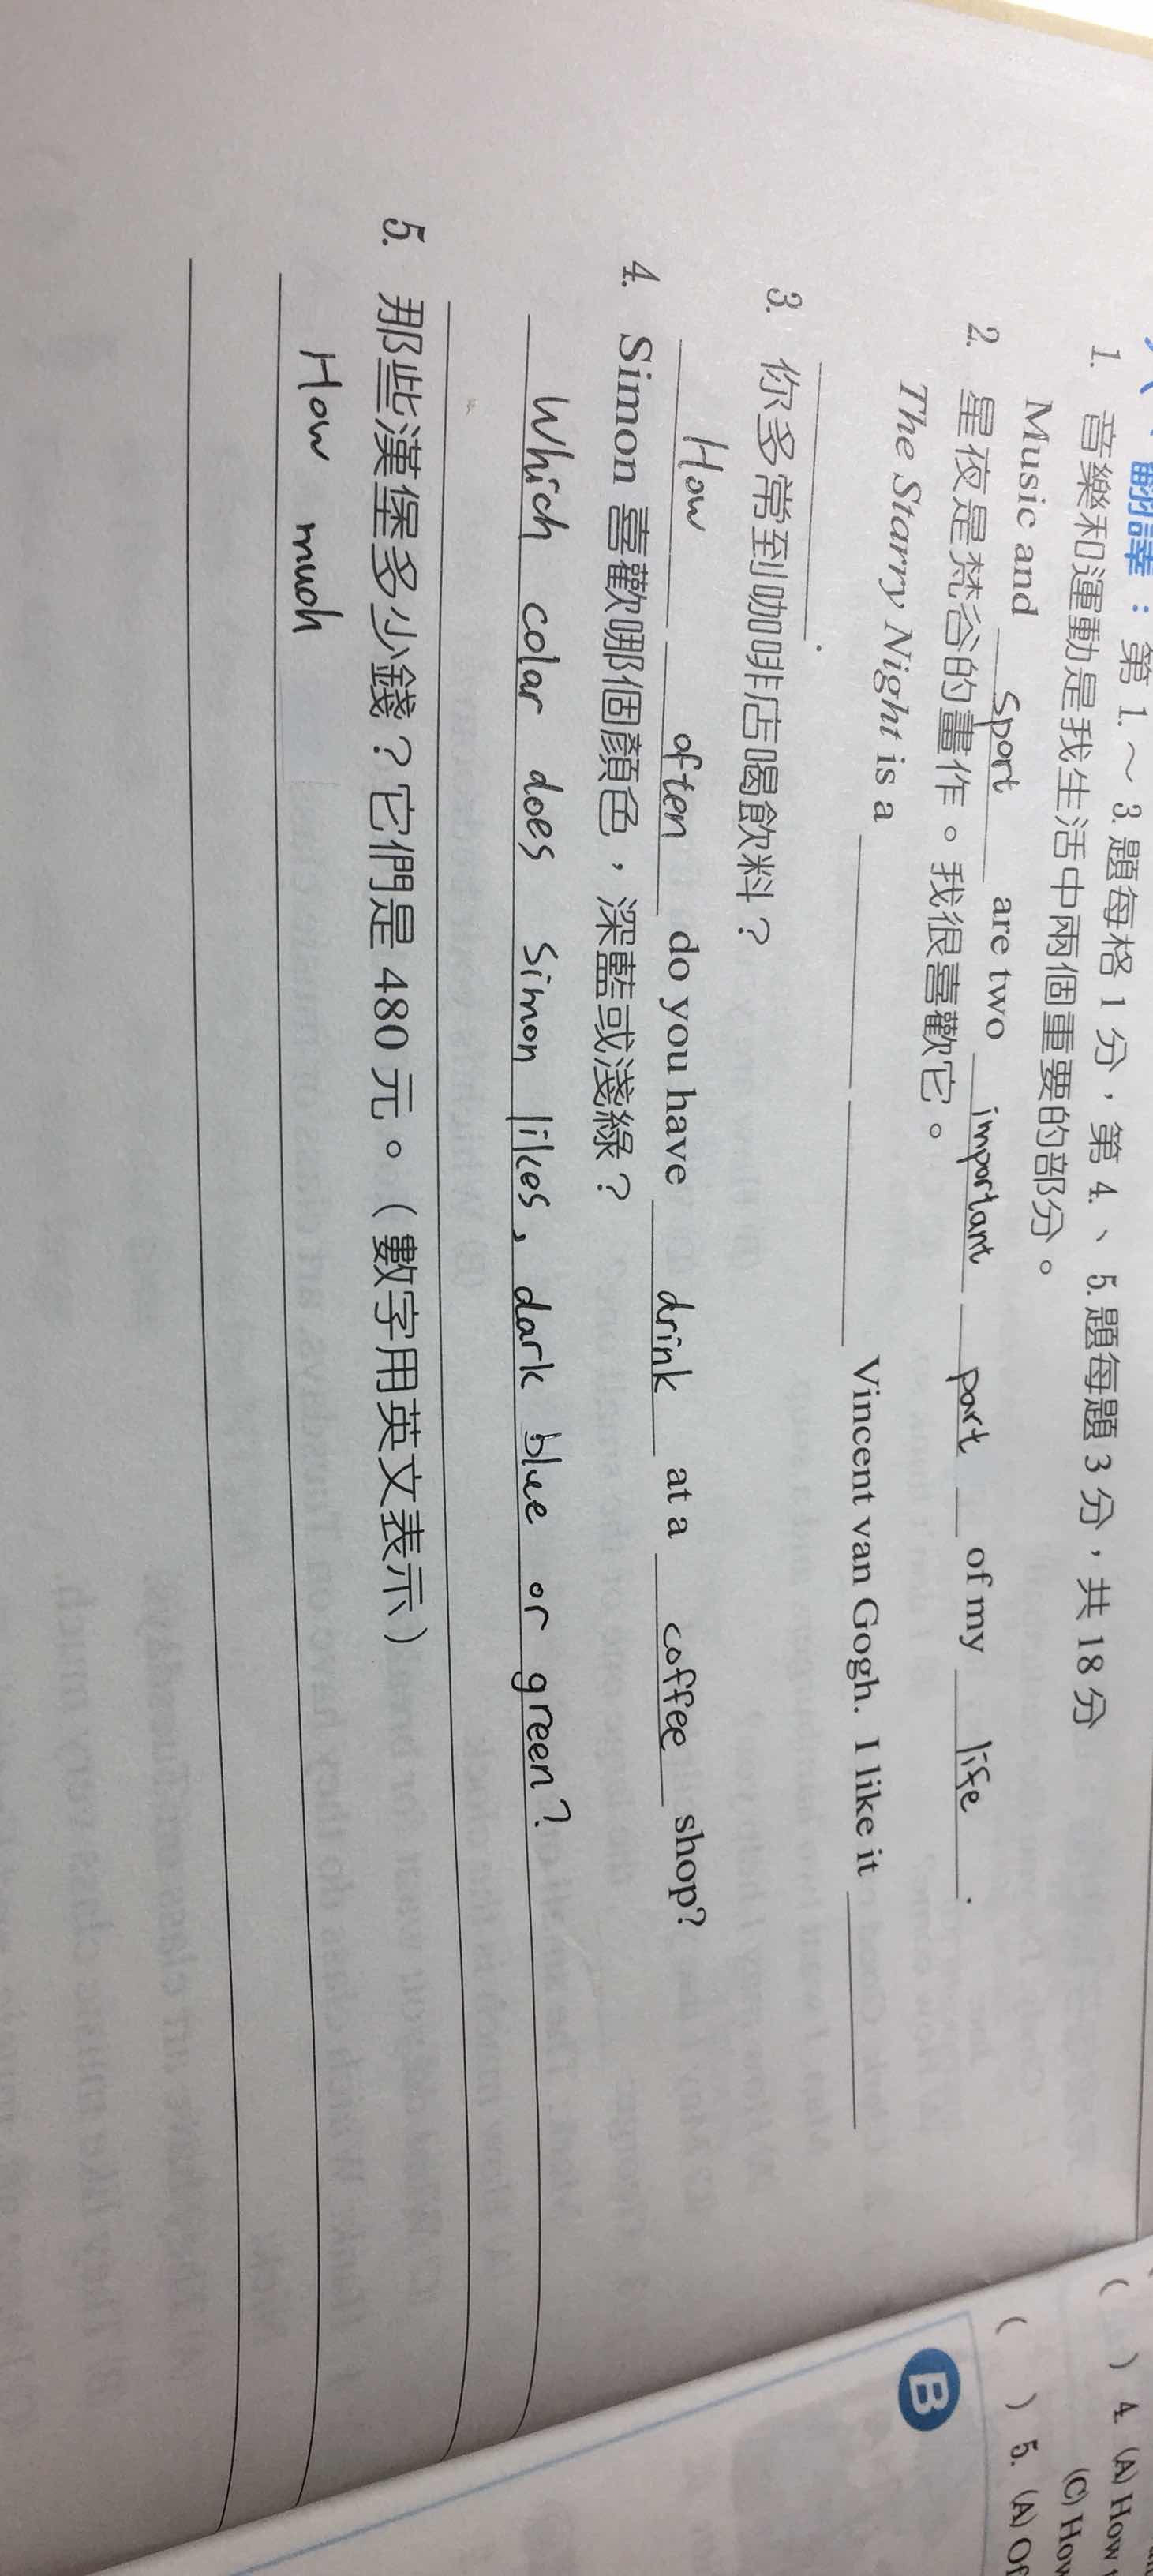 翻譯：第 1.～3.題每格 1 分，第 4.、5.題每題 3 分，共 18 分
1. 音樂和運動是我生活中兩個重要的部分。
Music and sport are two important part of my life.
2. 星夜是梵谷的畫作。我很喜歡它。
The Starry Night is a ______ ______ Vincent van Gogh. I like it ______
______.
3. 你多常到咖啡店喝飲料？
How often do you have drink at a coffee shop?
4. Simon 喜歡哪個顏色，深藍或淺綠？
Which color does Simon likes, dark blue or green?
5. 那些漢堡多少錢？它們是 480 元。（數字用英文表示）
How much
( ) 4. (A) How
(C) How
( ) 5. (A) Of
B